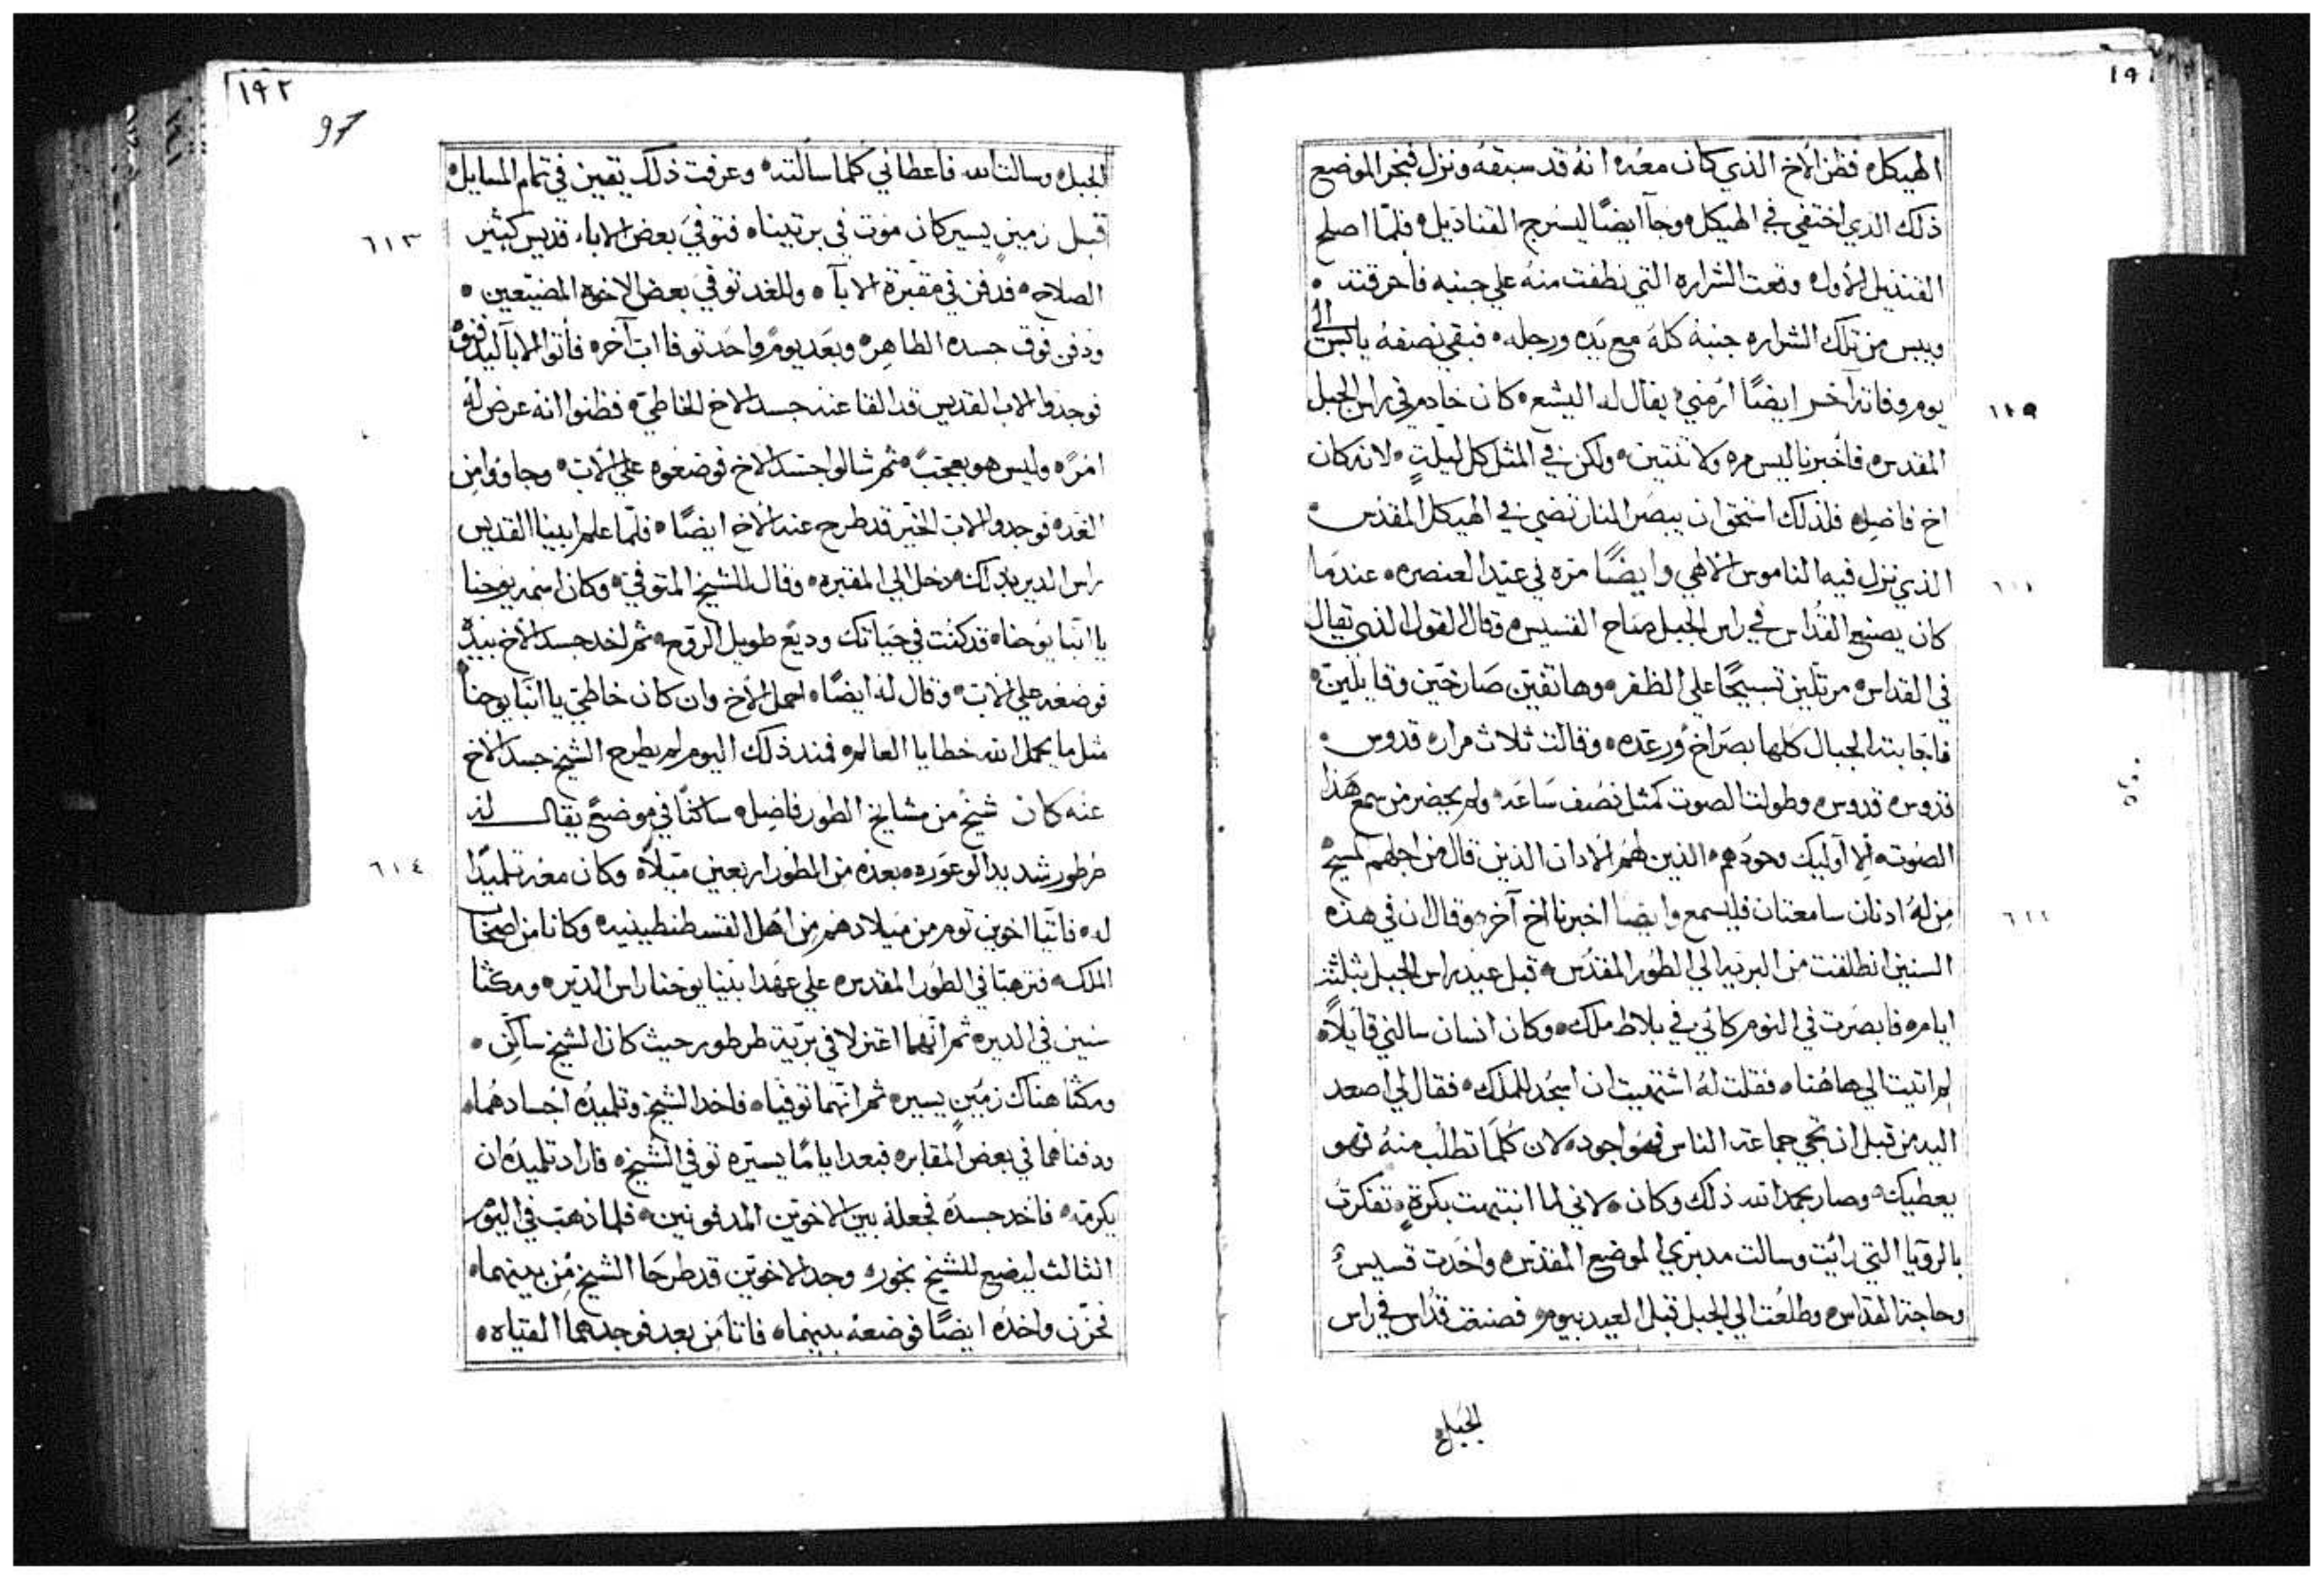 ١٩١
الهيكل، فظن الاخ الذي كان معه، انه قد سبقه ونزل فبخر الموضع
ذلك الذي اختفي في الهيكل، وجآ ايضًا ليسرج القناديل، فلمّا اصلح
القنديل الاول، وقعت الشراره التي نطفت منه علي جنبه فأحرقته.
ويبس من تلك الشراره جنبه كله مع يده ورجله، فبقي نصفه يابس الي
يوم وفاته آخر ايضًا ارمني، يقال له اليشع، كان خادم في راس الجبل
٦٠٩
المقدس، فأخبرنا ليس مره ولا تنتين، ولكن في المثل كل ليلةٍ، لانه كان
اخ فاضل، فلذلك استحق ان يبصر النار تضي في الهيكل المقدس.
الذي نزل فيه الناموس الالاهي وايضًا مره في عيد العنصره، عندما
٦١٠
كان يصنع القُداس في راس الجبل صاح القسيس، وقال القول الذي يقال
في القداس، مرتلين تسبيحًا علي الظفر، وهاتفين صارخين وقايلين.
فاجابته الجبال كلها بصراخ ورعده، وقالت ثلاث مرار، قدوس.
قدوس، قدوس، وطولت الصوت كمثل نصف ساعه، ولم يحضر من سمع هذا
الصوت، الا اوليك وحودهم، الذين لهم الادان الذين قال من اجلهم المسيح
من له ادنان سامعتان فليسمع وايضا اخبرنا اخ آخر، وقال ان في هذه
٦١١
السنين انطلقت من البريه الي الطور المقدس، قبل عيد راس الجبل بثلثة
ايام، فابصرت في النوم كاني في بلاط ملك، وكان انسان سالني قايلاً،
لم اتيت الي هاهنا، فقلت له اشتهيت ان اسجد للملك، فقال لي اصعد
اليه من قبل ان تجي جماعة الناس فهو اجود، لان كلما تطلب منه فهو
يعطيك، وصار بحمد الله ذلك وكان، لاني لما انتبهت بكرةٍ، تفكرت
بالرؤيا التي رائيت وسالت مدبري الموضع المقدس، واخدت قسيس.
وحاجة القداس، وطلعت الي الجبل قبل العيد بيوم، فصنعت قداس في راس
الجبل،
١٩٢
97
الجبل، وسالت الله فاعطاني كلما سالته، وعرفت ذلك يقين في تمام المسايل،
قبل زمينٍ يسير كان موت في بريتنا، فتوفي بعض الاباء قديس كبير
٦١٣
الصلاح، فدفن في مقبرة الابآ، وللغد توفي بعض الاخوه المضيّعين.
ودفن فوق جسده الطاهر، وبعد يوم واحد توفا اب آخر، فأتوا الابآ ليدفنوه
فوجدوا الاب القديس قد القا عنه جسد الاخ الخاطي، فظنوا انه عرض له
امرً، وليس هو بعجبً، ثمر شالوا جسد الاخ فوضعوه علي الاب، وجاووا من
الغد، فوجدوا الاب الخيّر قد طرح عنه الاخ ايضًا، فلمّا علم ابينا القديس
راس الدير بذلك، دخل الي المقبره، وقال للشيخ المتوفي، وكان اسمه يوحنا
يا انبا يوحنا، قد كنت في حياتك وديع طويل الروح، ثم اخد جسد الاخ بيده
فوضعه علي الاب، وقال له ايضًا، احمل الاخ وان كان خاطي يا انبا يوحنا
مثل ما يحمل الله خطايا العالم، فمند ذلك اليوم لم يطرح الشيخ جسد الاخ
عنه كان شيخ من مشايخ الطور فاضل، ساكنًا في موضع يقال له
طرطور شديد الوعوره، بعده من الطور اربعين ميلاً، وكان معه تلميدًا
٦١٤
له، فاتيا اخوين توم من ميلادهم من اهل القسطنطينيه، وكانا من اصحاب
الملك، فترهبّا في الطور المقدس، علي عهد ابينا يوحنا راس الدير، ومكثا
سنين في الدير، ثمر انهما اعتزلا في برية طرطور حيث كان الشيخ ساكن.
ومكثا هناك زمينٍ يسير، ثمر انهما توفيا، فاخد الشيخ وتلميده اجسادهما،
ودفناهما في بعض المقابر، فبعد اياما يسيره توفي الشيخ، فاراد تلميده ان
يكرمه، فاخد جسده فجعله بين الاخوين المدفونين، فلما ذهب في اليوم
الثالث ليضع للشيخ بخور، وجد الاخوين قد طرحا الشيخ من بينهما،
فحزن واخده ايضًا فوضعه بينهما، فاتا من بعد فوجدهما القياه،